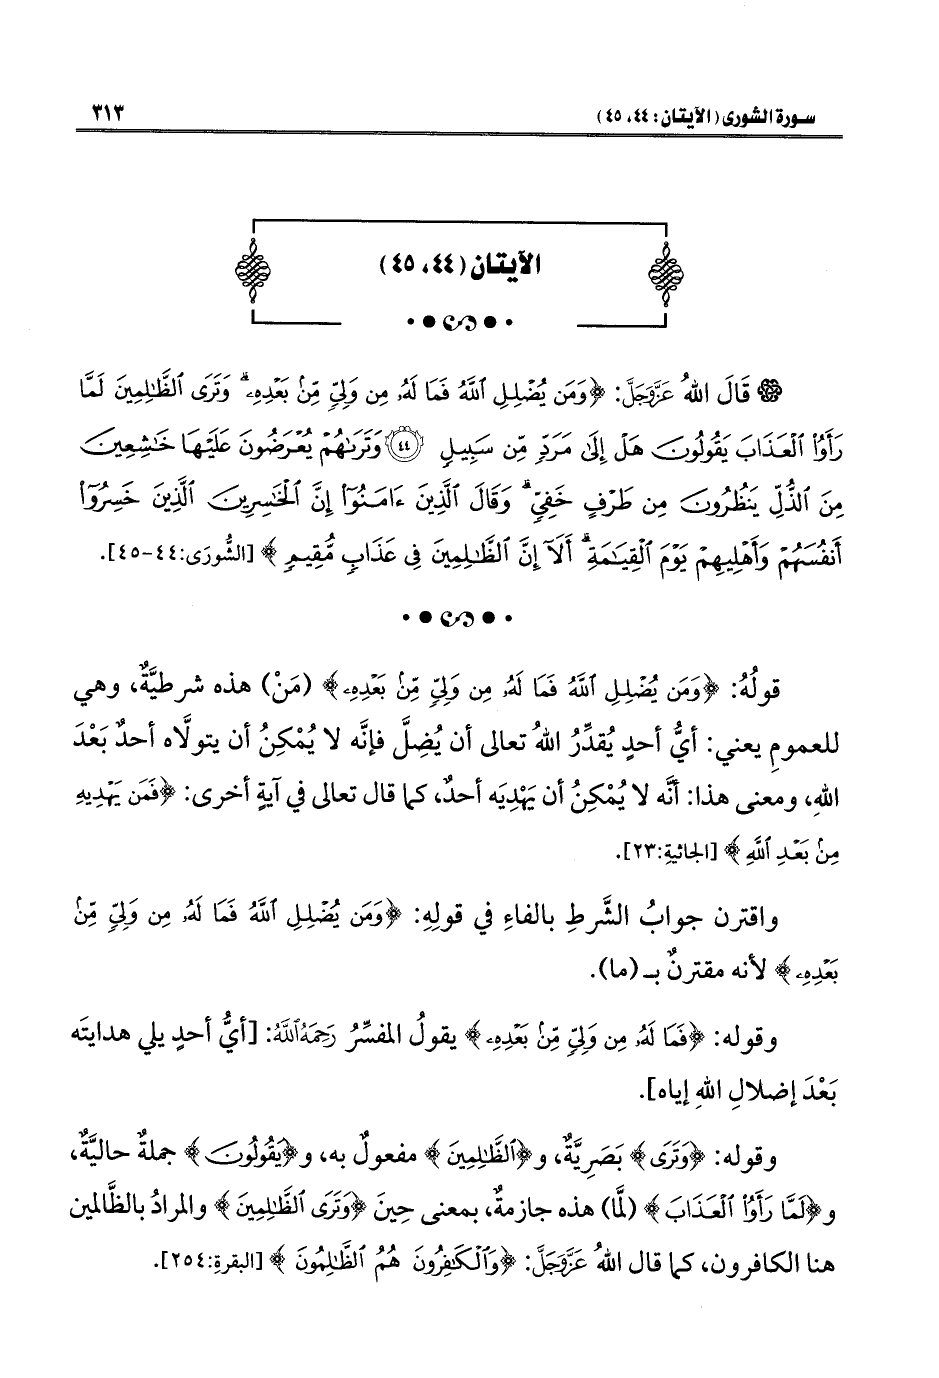 سورة الشورى (الآيتان: ٤٤، ٤٥)
٣١٣
الآيتان (٤٤، ٤٥)
قَالَ اللهُ عَزَّوَجَلَّ: ﴿وَمَن يُضْلِلِ ٱللَّهُ فَمَا لَهُۥ مِن وَلِيٍّ مِّنۢ بَعْدِهِۦ ۗ وَتَرَى ٱلظَّٰلِمِينَ لَمَّا
رَأَوُا۟ ٱلْعَذَابَ يَقُولُونَ هَلْ إِلَىٰ مَرَدٍّ مِّن سَبِيلٍ ﴿٤٤﴾ وَتَرَىٰهُمْ يُعْرَضُونَ عَلَيْهَا خَٰشِعِينَ
مِنَ ٱلذُّلِّ يَنظُرُونَ مِن طَرْفٍ خَفِيٍّ ۗ وَقَالَ ٱلَّذِينَ ءَامَنُوٓا۟ إِنَّ ٱلْخَٰسِرِينَ ٱلَّذِينَ خَسِرُوٓا۟
أَنفُسَهُمْ وَأَهْلِيهِمْ يَوْمَ ٱلْقِيَٰمَةِ ۗ أَلَآ إِنَّ ٱلظَّٰلِمِينَ فِى عَذَابٍ مُّقِيمٍ﴾ [الشُّورَى:٤٤-٤٥].
قولُهُ: ﴿وَمَن يُضْلِلِ ٱللَّهُ فَمَا لَهُۥ مِن وَلِيٍّ مِّنۢ بَعْدِهِۦ﴾ (مَنْ) هذه شرطيَّةٌ، وهي
للعمومِ يعني: أيُّ أحدٍ يُقدِّرُ اللهُ تعالى أن يُضِلَّ فإنَّه لا يُمْكِنُ أن يتولَّاه أحدٌ بَعْدَ
اللهِ، ومعنى هذا: أنَّه لا يُمْكِنُ أن يَهْدِيَه أحدٌ، كما قال تعالى في آيةٍ أخرى: ﴿فَمَن يَهْدِيهِ
مِنۢ بَعْدِ ٱللَّهِ﴾ [الجاثية:٢٣].
واقترن جوابُ الشَّرطِ بالفاءِ في قولِهِ: ﴿وَمَن يُضْلِلِ ٱللَّهُ فَمَا لَهُۥ مِن وَلِيٍّ مِّنۢ
بَعْدِهِۦ﴾ لأنه مقترنٌ بـ(ما).
وقوله: ﴿فَمَا لَهُۥ مِن وَلِيٍّ مِّنۢ بَعْدِهِۦ﴾ يقولُ المفسِّرُ رَحِمَهُ ٱللَّهُ: [أيُّ أحدٍ يلي هدايتَه
بَعْدَ إضلالِ اللهِ إياه].
وقوله: ﴿وَتَرَى﴾ بَصَرِيَّةٌ، و﴿ٱلظَّٰلِمِينَ﴾ مفعولٌ به، و﴿يَقُولُونَ﴾ جملةٌ حاليَّةٌ،
و﴿لَمَّا رَأَوُا۟ ٱلْعَذَابَ﴾ (لَّمَا) هذه جازمةٌ، بمعنى حِينَ ﴿وَتَرَى ٱلظَّٰلِمِينَ﴾ والمرادُ بالظَّالمين
هنا الكافرون، كما قال اللهُ عَزَّوَجَلَّ: ﴿وَٱلْكَٰفِرُونَ هُمُ ٱلظَّٰلِمُونَ﴾ [البقرة:٢٥٤].